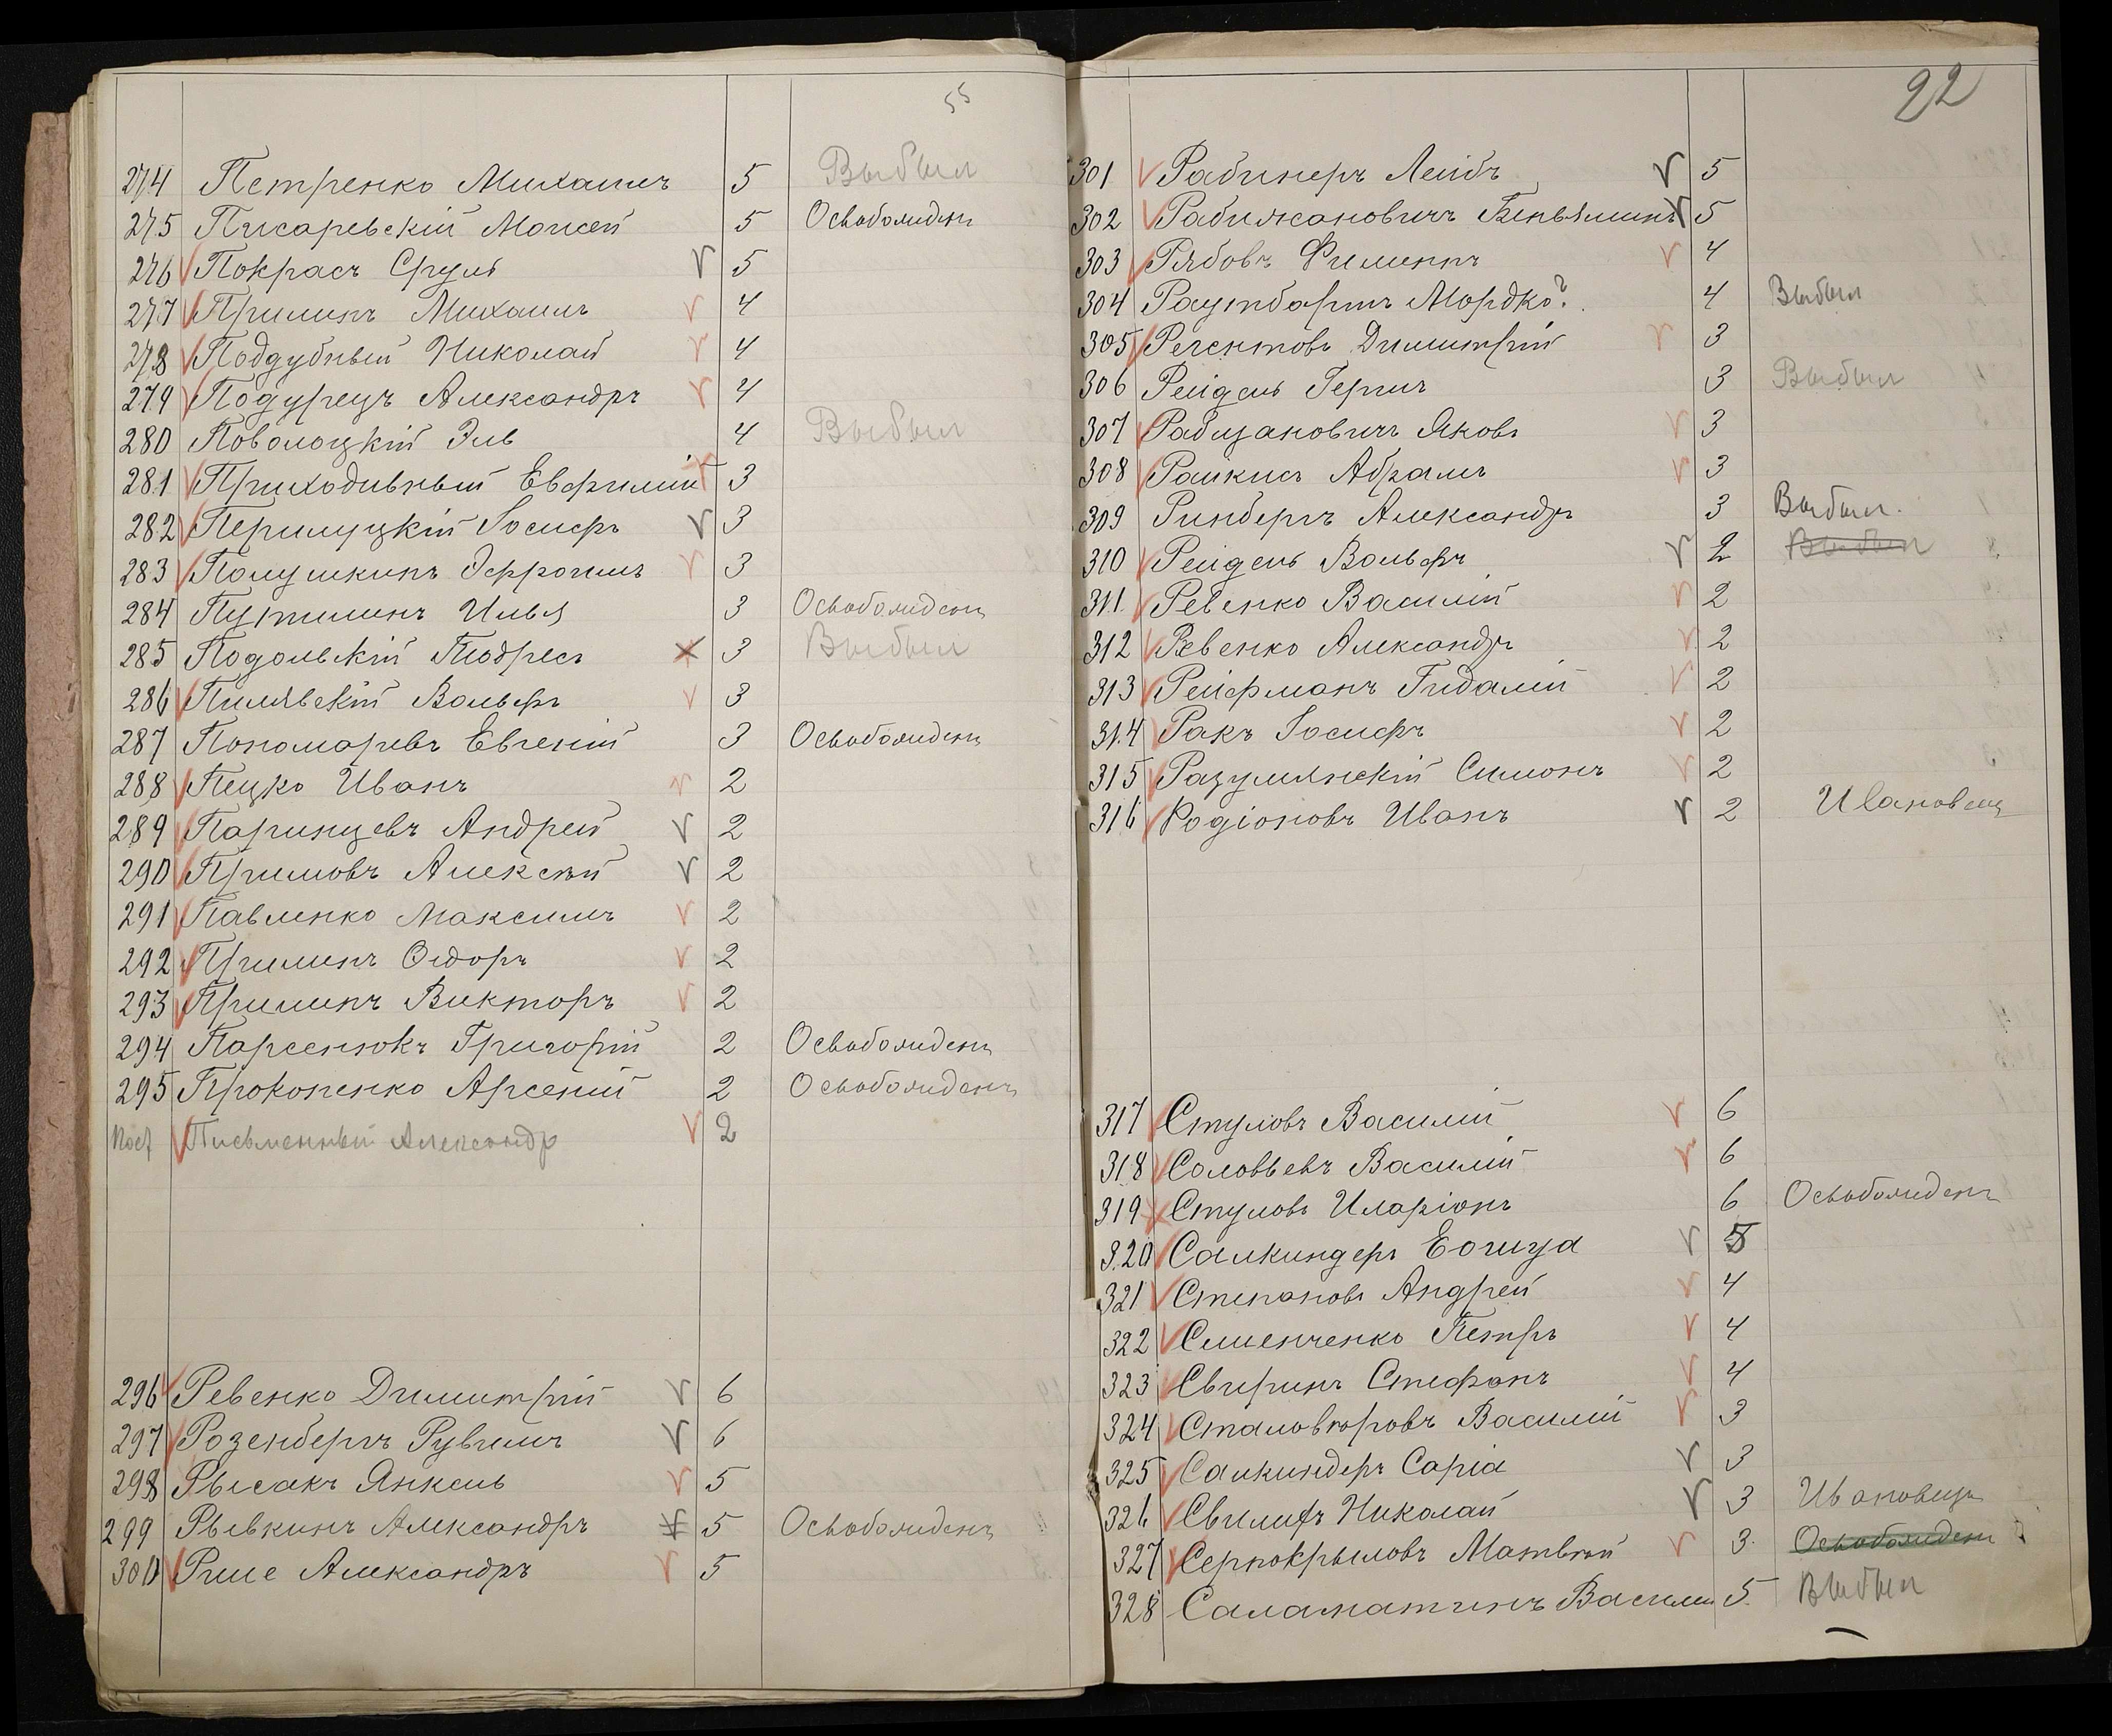 55
274 Петренко Михаилъ 5 Выбыл
275 Писаревскій Моисей 5 Освобожденъ
276 Покрасъ Сруль 5
277 Прилипъ Михаилъ 4
278 Поддубный Николай 4
279 Подурецъ Александръ 4
280 Поволоцкій Эль 4 Выбыл
281 Приходивный Евфимій 3
282 Перилуцкій Іосифъ 3
283 Полушкинъ Эффроимъ 3
284 Путилинъ Илья 3 Освобожденъ
285 Подольскій Тодресъ 3 Выбыл
286 Пилявскій Вольфъ 3
287 Пономаревъ Евгеній 3 Освобожденъ
288 Пецко Иванъ 2
289 Паринцевъ Андрей 2
290 Примовъ Алексѣй 2
291 Павленко Максимъ 2
292 Прилипъ Ѳидоръ 2
293 Прилипъ Викторъ 2
294 Парсенюкъ Григорій 2 Освобожденъ
295 Прокопенко Арсеній 2 Освобожденъ
Письменный Александр 2
296 Ревенко Димитрій 6
297 Розенбергъ Рувимъ 6
298 Рысакъ Янкель 5
299 Рывкинъ Александръ 5 Освобожденъ
300 Александръ 5
22
301 Рабинеръ Лейбъ 5
302 Рабижановичъ Беньяминъ 5
303 Рябовъ Филиппъ 4
304 Раутбортъ Мордко? 4 Выбыл
305 Регентовъ Димитрій 3
306 Рейдель Гершъ 3 Выбыл
307 Рабизановичъ Яковъ 3
308 Райкисъ Абрамъ 3
309 Ринбергъ Александръ 3 Выбыл.
310 Рейдель Вольфъ 2 Выбыл
311 Ревенко Василій 2
312 Ревенко Александръ 2
313 Рейфманъ Гидалій 2
314 Ракъ Іосифъ 2
315 Разумянскій Симонъ 2
316 Родіоновъ Иванъ 2 Ивановецъ
317 Стуловъ Василій 6
318 Соловьевъ Василій 6
319 Стуловъ Иларіонъ 6 Освобожденъ
320 Салкиндеръ 5
321 Степановъ Андрей 4
322 Петръ 4
323 Свиринъ Стефанъ 4
324 Василій 3
325 Салкиндеръ Саріа 3
326 Николай 3 Ивановецъ
327 Сернокрыловъ Матвѣй 3. Освобожденъ
328 Саламатинъ Василий 5. Выбыл